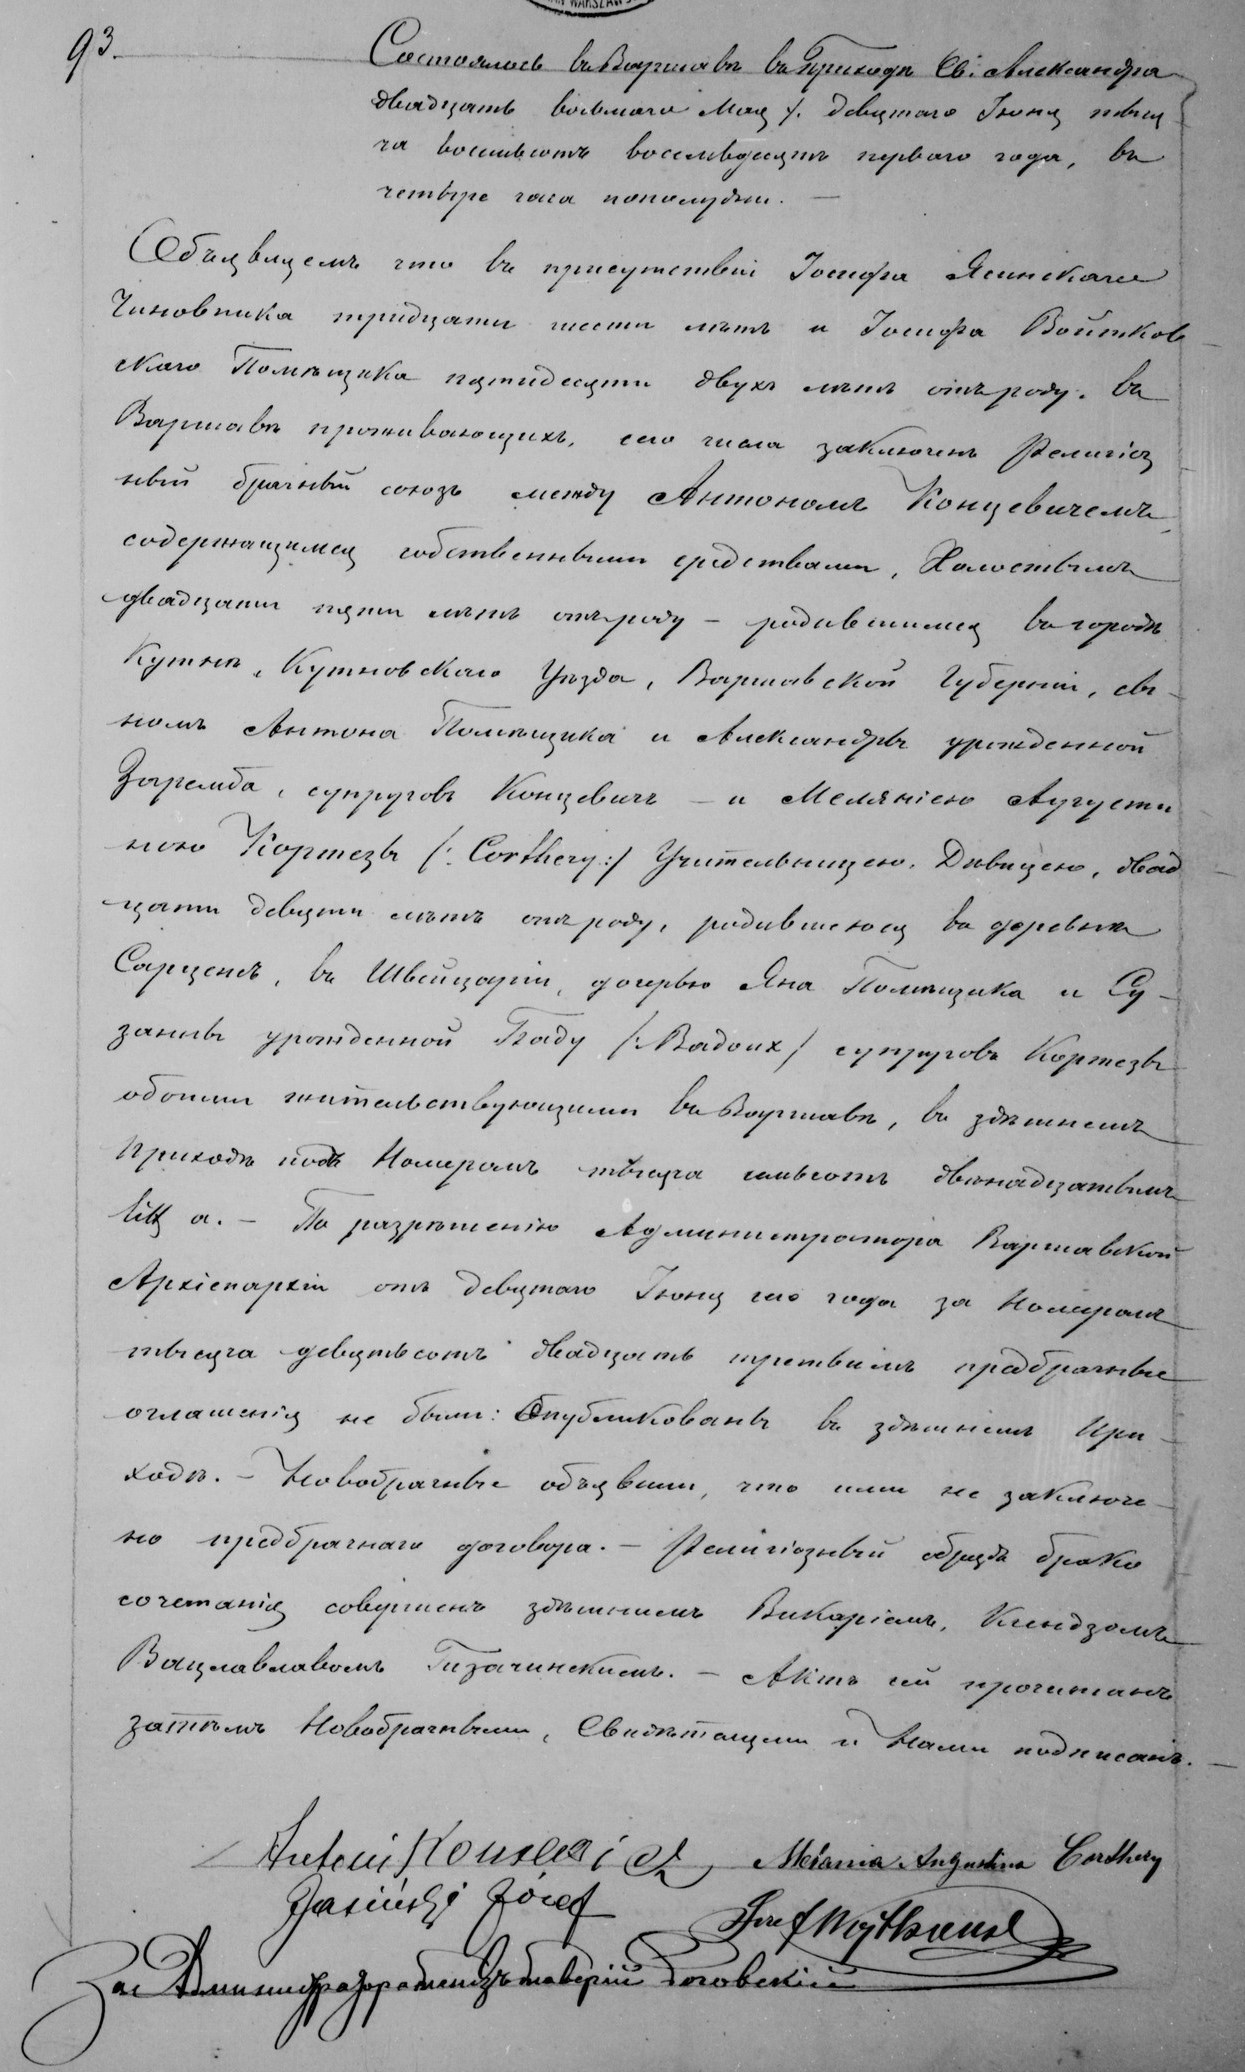 93.
Состоялось въ Варшавѣ въ Приходѣ Св: Александра
двадцать восьмаго Мая /. девятаго Іюня тыся-
ча восемьсотъ восемьдесятъ перваго года, въ
четыре часа пополудни. —
Объявляемъ что въ присутствіи Іосифа Ясинскаго
Чиновника тридцати шести лѣтъ и Іосифа Войтков-
скаго Помѣщика пятидесяти двухъ лѣтъ отъ роду. въ
Варшавѣ проживающихъ, сего числа заключенъ Религіоз-
ный брачный союзъ между Антономъ Концевичемъ,
содержащимся собственными средствами, Холостымъ
двадцати пяти лѣтъ отъ роду — родившимся въ городѣ
Кутнѣ, Кутновскаго Уѣзда, Варшавской Губерніи, сы-
номъ Антона Помѣщика и Александры урожденной
Заремба, супруговъ Концевичъ — и Меляніею Аугусти
ною Кортезы /: Corthezy :/ Учительницею. Дѣвицею, двад-
цати девяти лѣтъ отъ роду, родившеюся въ деревнѣ
Сарценъ, въ Швейцаріи, дочерью Яна Помѣщика и Су-
занны урожденной Баду /: Badoux / супруговъ Кортезы
обоими жительствующими въ Варшавѣ, въ здѣшнемъ
Приходѣ подъ Номеромъ тысяча семьсотъ двѣнадцатымъ
litt a. — По разрѣшенію Администратора Варшавской
Архіепархіи отъ девятаго Іюня сего года за Номеромъ
тысяча девятьсотъ двадцать третьимъ предбрачные
оглашенія не были: Опубликованы въ здѣшнемъ При-
ходѣ. — Новобрачные объявили, что ими не заключе-
но предбрачнаго договора. — Религіозный обрядъ брако
сочетанія совершенъ здѣшнимъ Викаріемъ, Ксендзомъ
Вацлавлавомъ — Актъ сей прочитанъ
затѣмъ Новобрачными, Свидѣтелями и Нами подписанъ. —
Antoni Koncewicz Melania Augustina Corthezy
Jasiński Józef
Józef Wojtkowski
За Администратора